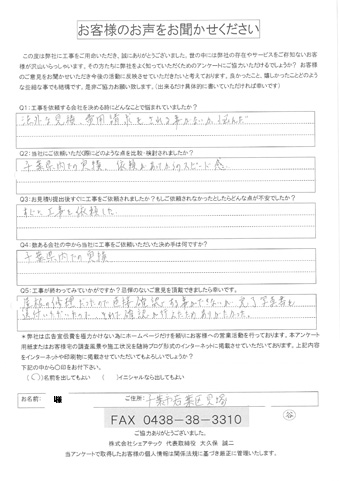 お客様のお声をお聞かせください
この度は弊社に工事をご用命いただき、誠にありがとうございました。世の中には弊社の存在やサービスをご存知ないお客
様が沢山いらっしゃいます。その方たちに弊社をよく知っていただくためのアンケートにご協力いただけるでしょうか？ お客様
のご意見をお聞かせいただき今後の活動に反映させていただきたいと考えております。良かったこと、嬉しかったことどのよう
な些細な事でも結構です。是非ご協力お願い致します。（出来るだけ具体的に書いていただければ幸いです）
Q1：工事を依頼する会社を決める時にどんなことで悩まれていましたか？
法外な見積、費用請求をされる事がないか悩んだ
Q2：当社にご依頼いただく際にどのような点を比較・検討されましたか？
千葉県内での実績、依頼
スピード感
Q3：お見積り提出後すぐに工事をご依頼されましたか？もしご依頼されなかったとしたらどんな点が不安でしたか？
すぐに工事を依頼した
Q4：数ある会社の中から当社に工事をご依頼いただいた決め手は何ですか？
千葉県内での実績
Q5：工事が終わってみていかがですか？忌憚のないご意見を頂戴できましたら幸いです。
屋根の修理だったので直接確認する事ができないが、完了写真を
送付いただいたので、それで確認が行えたためありがたかった。
＊弊社は広告宣伝費を極力かけない為にホームページだけを頼りにお客様への営業活動を行っております。本アンケート
用紙またはお客様宅の調査風景や施工状況を随時ブログ形式のインターネットに掲載させていただいております。上記内容
をインターネットや印刷物に掲載させていただいてもよろしいでしょうか？
下記の中から〇印をお付下さい。
（〇）名前を出してもよい （ ）イニシャルなら出してもよい
お名前： 様 ご住所： 千葉市若葉区貝塚
FAX 0438-38-3310
谷
ご協力ありがとうございました。
株式会社シェアテック 代表取締役 大久保 誠二
当アンケートで取得したお客様の個人情報は関係法規に基づき厳正に管理いたします。